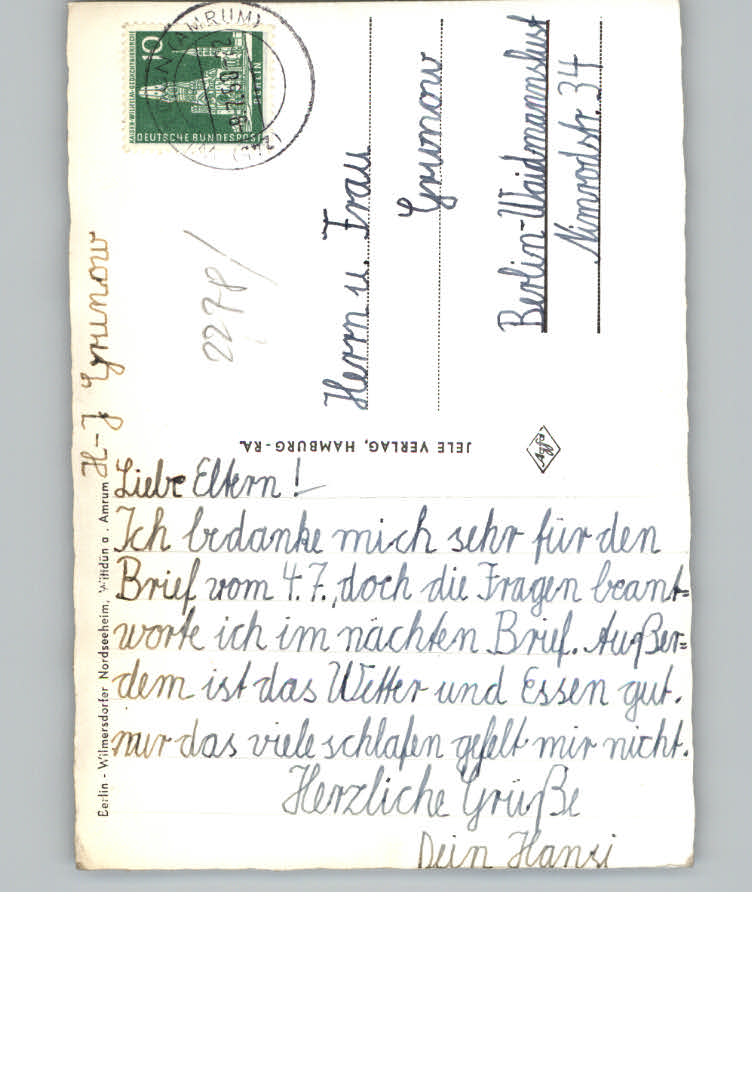 Berlin - Wilmersdorfer Nordseeheim, Wittdün a. Amrum
H-J Grunow
Liebe Eltern!
Ich bedanke mich sehr für den
Brief vom 4.7., doch die Fragen beant=
worte ich im nächten Brief. Außer=
dem ist das Wetter und Essen gut.
nur das viele schlafen gefelt mir nicht.
Herzliche Grüße
Dein Hansi
JELE VERLAG, HAMBURG-RA.
Agfa
2278/
10
KAISER-WILHELM-GEDÄCHTNISKIRCHE
BERLIN
DEUTSCHE BUNDESPOST
(AMRUM)
Herrn u. Frau
Grunow
Berlin-Waidmannslust
Nimrodstr. 34